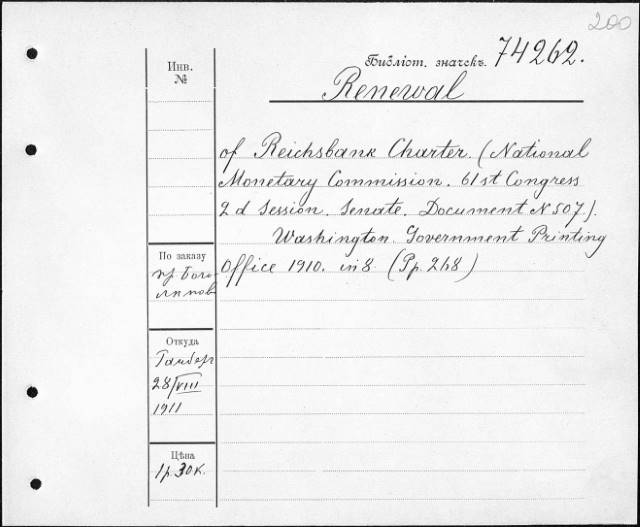 200
Библіот. значекъ. 74262.
Renewal
of Reichsbank Charter. (National
Monetary Commission. 61st Congress
2d Session. Senate. Document N 507).
Washington. Government Printing
Office 1910. in 8. (Pp. 268)
Инв.
№
По заказу
пр. Бого-
лѣпов
Откуда
28/VIII
1911
Цѣна
1 р. 30 к.